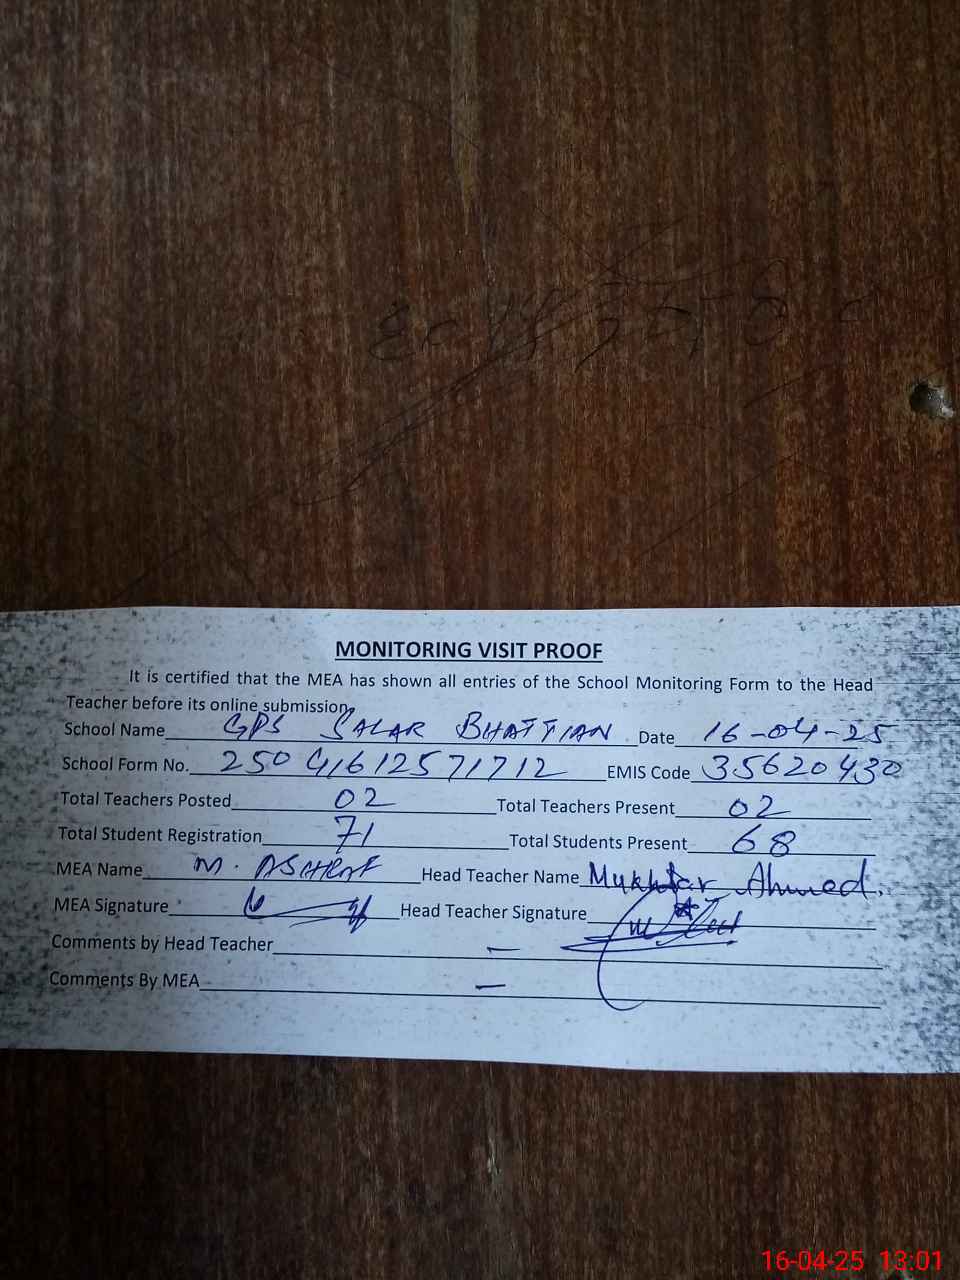 MONITORING VISIT PROOF
It is certified that the MEA has shown all entries of the School Monitoring Form to the Head
Teacher before its online submission.
School Name GPS SALAR BHATTIAN Date 16-04-25
School Form No. 25041612571712 EMIS Code 35620430
Total Teachers Posted 02 Total Teachers Present 02
Total Student Registration 71 Total Students Present 68
MEA Name M. ASHRAF Head Teacher Name Mukhtar Ahmed.
MEA Signature Head Teacher Signature
Comments by Head Teacher –
Comments By MEA –
16-04-25 13:01